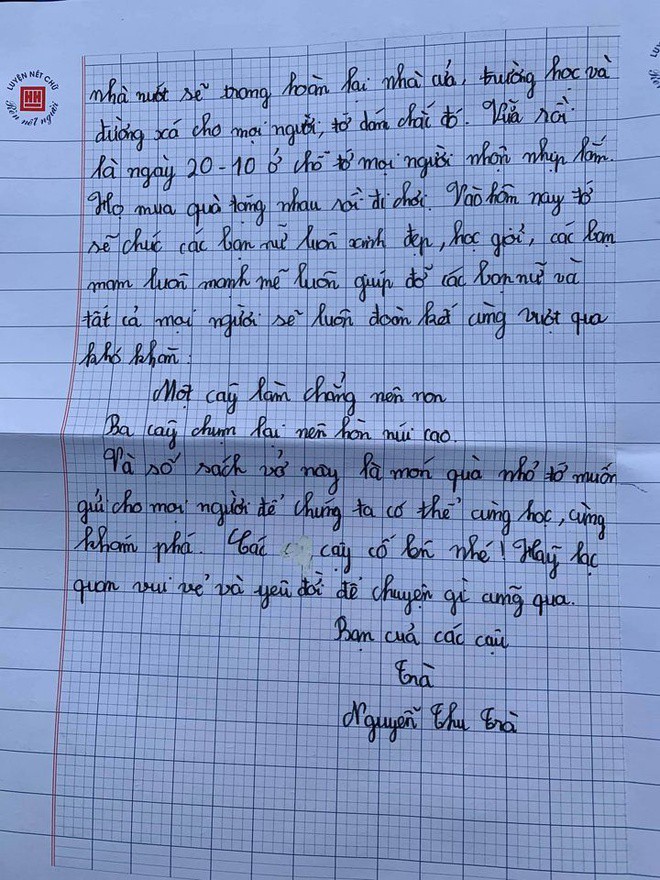 LUYỆN NÉT CHỮ
Rèn nết người
nhà nước sẽ trang hoàn lại nhà cửa, trường học và
đường xá cho mọi người, tớ dám chắc đó. Vừa rồi
là ngày 20-10 ở chỗ tớ mọi người nhộn nhịp lắm.
Họ mua quà tặng nhau rồi đi chơi. Vào hôm nay tớ
sẽ chúc các bạn nữ luôn xinh đẹp, học giỏi, các bạn
nam luôn mạnh mẽ luôn giúp đỡ các bạn nữ và
tất cả mọi người sẽ luôn đoàn kết cùng vượt qua
khó khăn:
Một cây làm chẳng nên non
Ba cây chụm lại nên hòn núi cao.
Và số sách vở này là món quà nhỏ tớ muốn
gửi cho mọi người để chúng ta có thể cùng học, cùng
khám phá. Các cậy cố lên nhé! Hãy lạc
quan vui vẻ và yêu đời để chuyện gì cũng qua.
Bạn của các cậu
Trà
Nguyễn Thu Trà